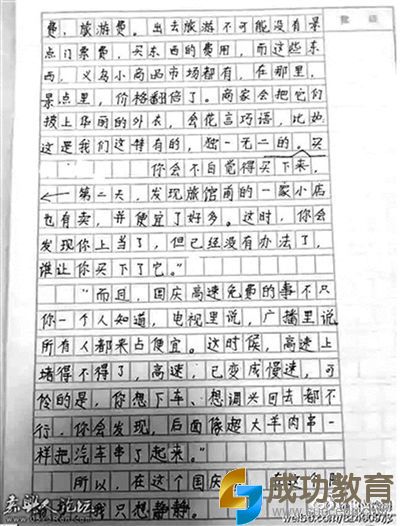 批语
费、旅游费。出去旅游不可能没有景
点门票费，买东西的费用，而这些东
西，义乌小商品市场都有，在那里，
景点里，价格翻倍了。商家会把它们
披上华丽的外衣，会花言巧语，比如
这是我们这特有的，独一无二的。买
你会不自觉得买下来，
第二天，发现旅馆前的一家小店
也有卖，并便宜了好多。这时，你会
发现你上当了，但已经没有办法了，
谁让你买下了它。”
“而且，国庆高速免费的事不只
你一个人知道，电视里说，广播里说
所有人都来占便宜。这时候，高速上
堵得不得了，高速，已变成慢速，可
怜的是，你想下车、想调头回去都不
行，你会发现，后面像超大羊肉串一
样把汽车串了起来。”
所以，在这个国庆
我只想静静。
成功教育